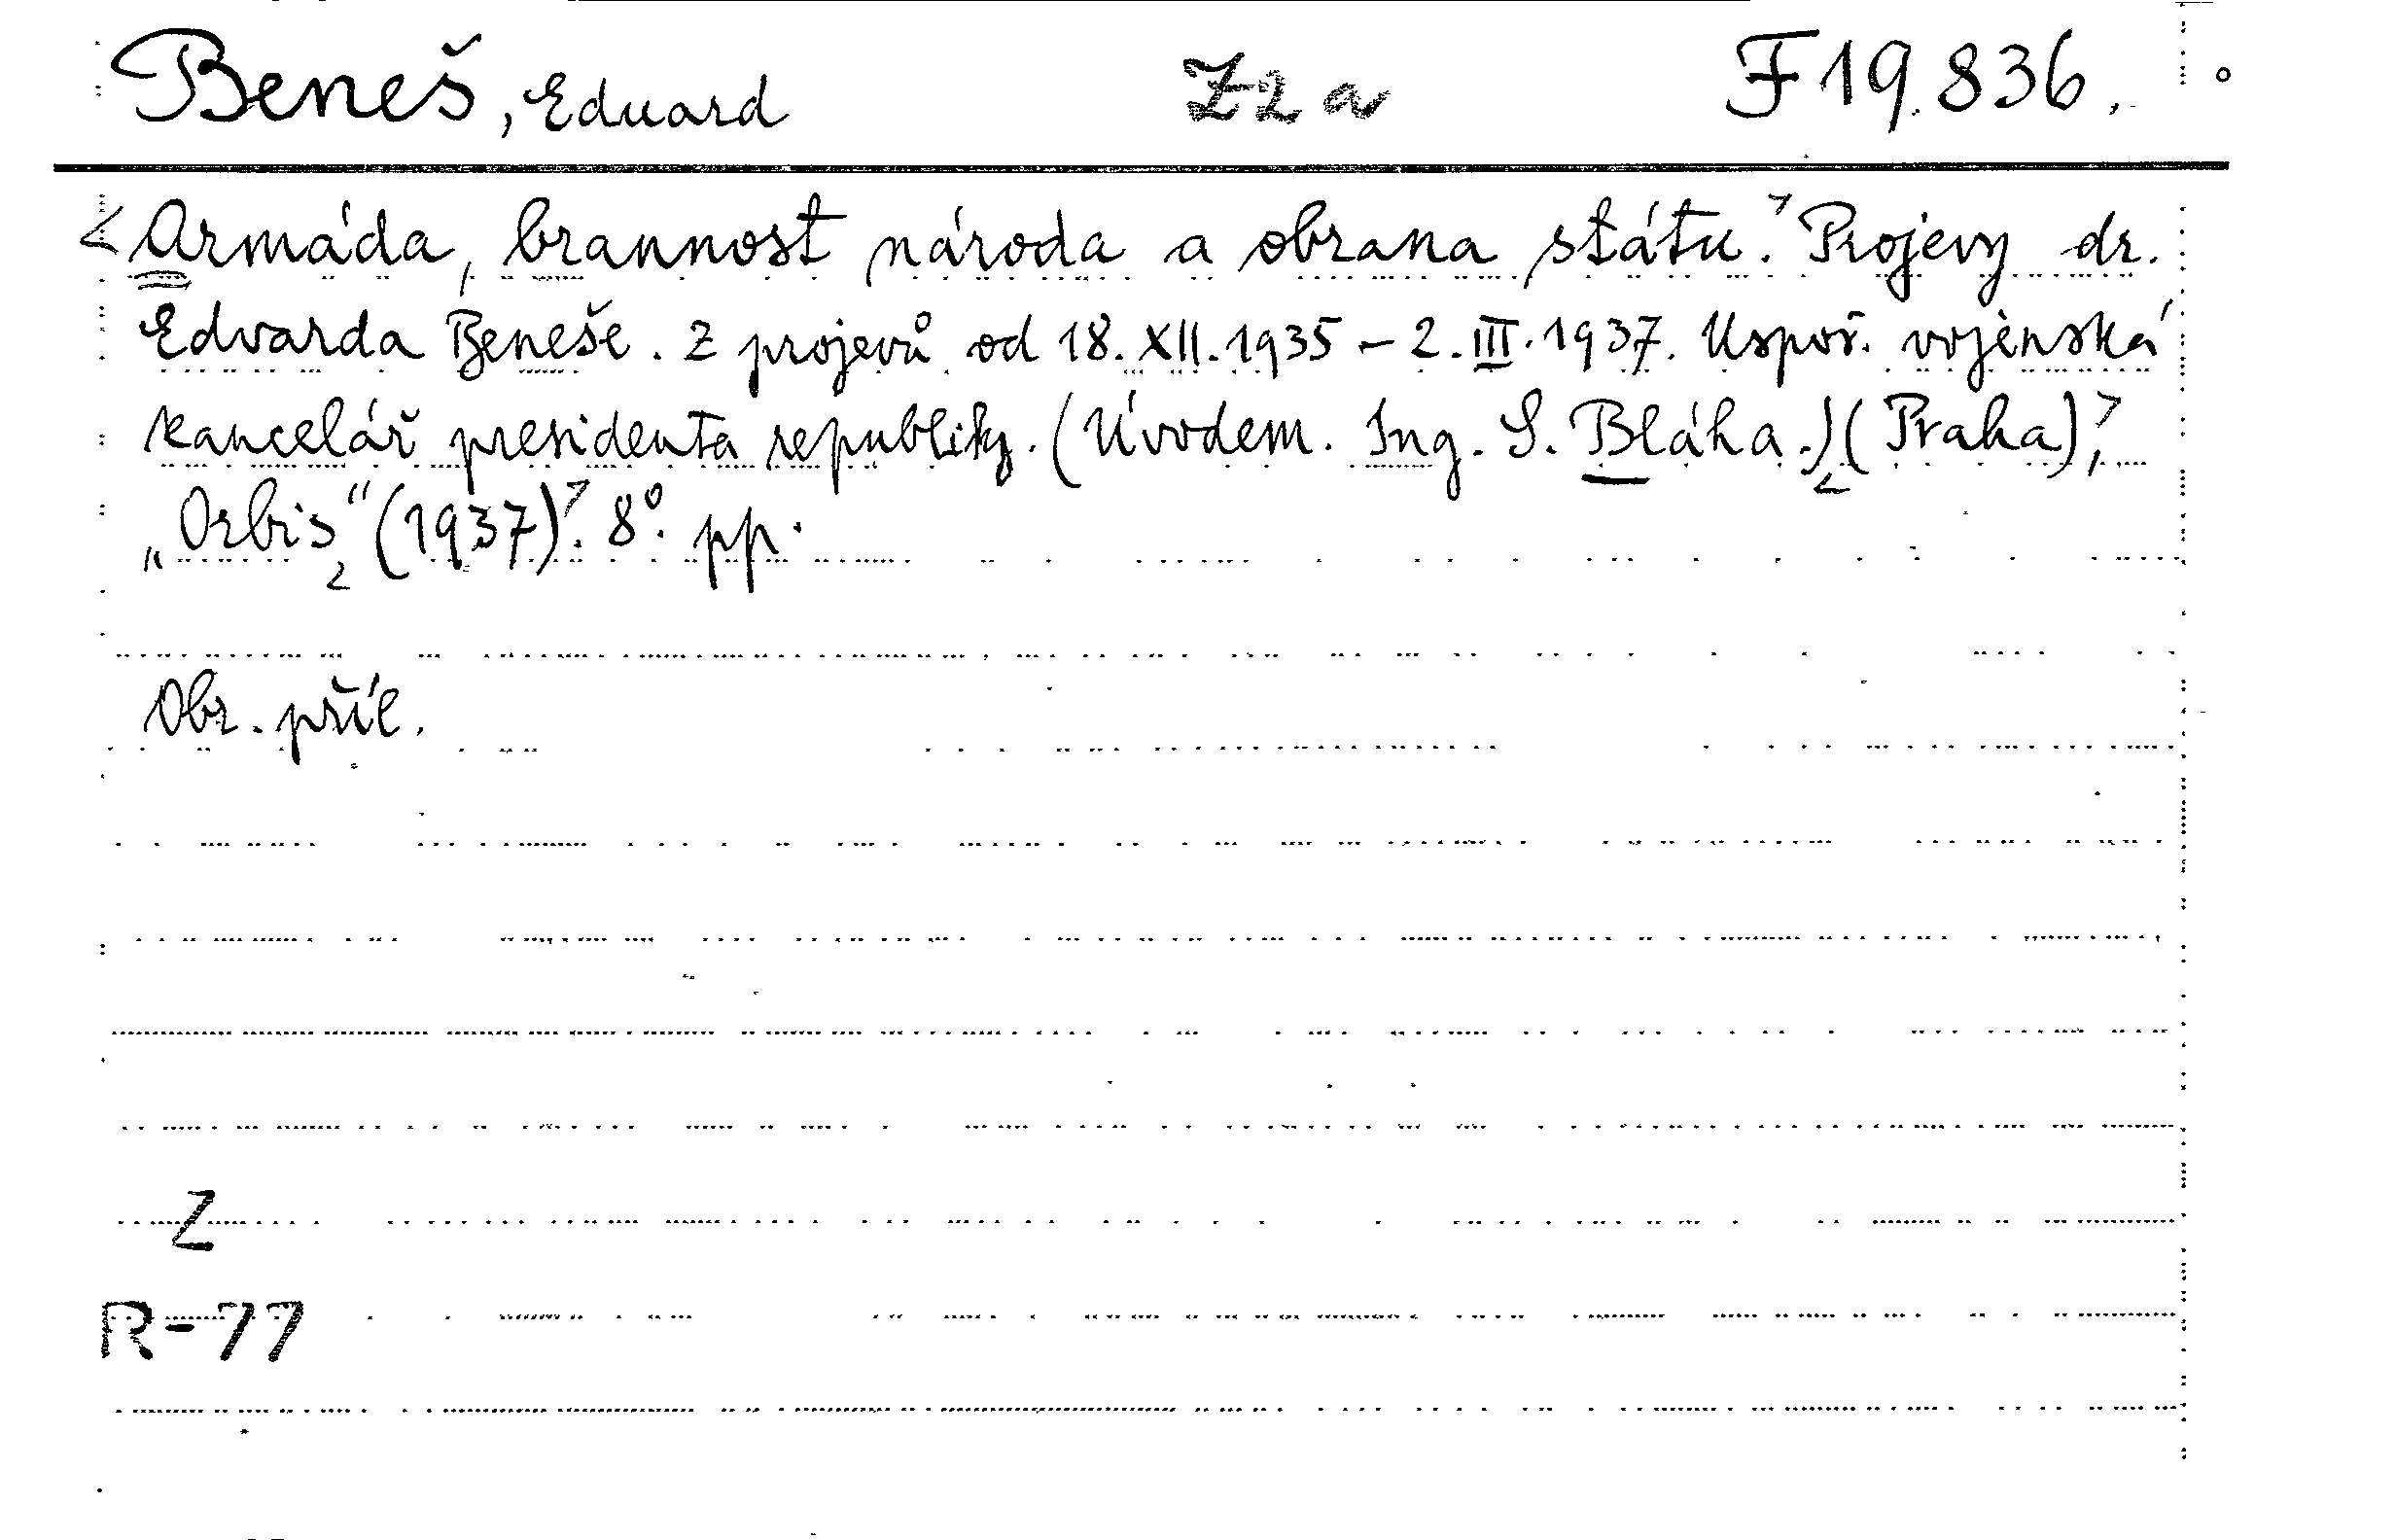 Beneš, Eduard Z2a F 19.836.
<Armáda, brannost národa a obrana státu.> Projevy dr.
Edvarda Beneše. Z projevů od 18.XII.1935 – 2.III.1937. Uspoř. vojenská
kancelář presidenta republiky. (Úvodem. Ing. S. Bláha.) <(Praha),>
„Orbis“ <(1937)>. 8°. pp.
Obr. příl.
Z
R-77